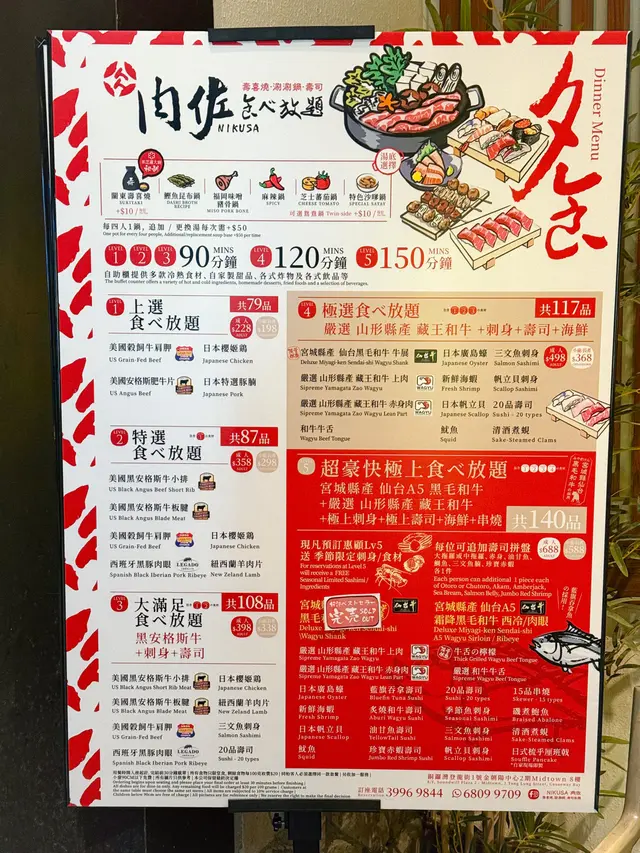 肉佐 食べ放題
NIKUSA
壽喜燒·涮涮鍋·壽司
夕食
Dinner Menu
湯底選擇
關東壽喜燒
SUKIYAKI
+$10/
鰹魚昆布鍋
DASHI BROTH RECIPE
福岡味噌豬骨鍋
MISO PORK BONE
麻辣鍋
SPICY
芝士蕃茄鍋
CHEESE TOMATO
特色沙嗲鍋
SPECIAL SATAY
可選鴛鴦鍋 Twin side +$10/
每四人1鍋，追加 / 更換湯每次需+$50
One pot for every four people, Additional/replacement soup base +$50 per time
LEVEL 1 LEVEL 2 LEVEL 3 90 MINS 分鐘
LEVEL 4 120 MINS 分鐘
LEVEL 5 150 MINS 分鐘
自助櫃提供多款冷熱食材、自家製甜品、各式炸物及各式飲品等
The buffet counter offers a variety of hot and cold ingredients, homemade desserts, fried foods and a selection of beverages.
LEVEL 1 上選食べ放題 共79品
成人 $228 $198
美國穀飼牛肩胛
US Grain-Fed Beef
日本櫻姬鷄
Japanese Chicken
美國安格斯肥牛片
US Angus Beef
日本特選豚腩
Japanese Pork
LEVEL 2 特選食べ放題 共87品
成人 $358 $298
美國黑安格斯牛小排
US Black Angus Beef Short Rib
美國黑安格斯牛板腱
US Black Angus Blade Meat
美國穀飼牛肩胛
US Grain-Fed Beef
日本櫻姬鷄
Japanese Chicken
西班牙黑豚肉眼
Spanish Black Iberian Pork Ribeye
LEGADO
紐西蘭羊肉片
New Zeland Lamb
LEVEL 3 大滿足食べ放題 共108品
黑安格斯牛+刺身+壽司
成人 $398 $338
美國黑安格斯牛小排
US Black Angus Short Rib Meat
日本櫻姬鷄
Japanese Chicken
美國黑安格斯牛板腱
US Black Angus Blade Meat
紐西蘭羊肉片
New Zeland Lamb
美國穀飼牛肩胛
US Grain-Fed Beef
三文魚刺身
Salmon Sashimi
西班牙黑豚肉眼
Spanish Black Iberian Pork Ribeye
LEGADO
20品壽司
Sushi - 20 types
LEVEL 4 極選食べ放題 共117品
嚴選 山形縣產 藏王和牛 +刺身+壽司+海鮮
成人 $498 $368
宮城縣產 仙台黑毛和牛 牛展
Deluxe Miyagi-ken Sendai-shi Wagyu Shank
日本廣島蠔
Japanese Oyster
三文魚刺身
Salmon Sashimi
嚴選 山形縣產 藏王和牛上肉
Sipreme Yamagata Zao Wagyu
WAGYU
新鮮海蝦
Fresh Shrimp
帆立貝刺身
Scallop Sashimi
嚴選 山形縣產 藏王和牛赤身肉
Sipreme Yamagata Zao Wagyu Lean Part
WAGYU
日本帆立貝
Japanese Scallop
20品壽司
Sushi - 20 types
和牛牛舌
Wagyu Beef Tongue
魷魚
Squid
清酒煮蜆
Sake-Steamed Clams
5 超豪快極上食べ放題
宮城縣產 仙台A5 黑毛和牛
+嚴選 山形縣產 藏王和牛
+極上刺身+極上壽司+海鮮+串燒
共140品
宮城縣仙台黑毛和牛
現凡預訂惠顧Lv5
送 季節限定刺身/食材
For reservations at Level 5
will receive a FREE
Seasonal Limited Sashimi /
Ingredients
成人 $688 $588
每位可追加壽司拼盤
大拖羅或中拖羅、赤身、油甘魚、
鯛魚、三文魚籽、珍寶赤蝦
各1件
Each person can additional 1 piece each
of Otoro or Chutoro, Akami, Amberjack,
Sea Bream, Salmon Belly, Jumbo Red Shrimp
藍鰭吞拿魚の採用！
宮城
黑毛
Deluxe
Wagyu Shank
SOLD OUT
完売
宮城縣產 仙台A5
霜降黑毛和牛 西冷/肉眼
Deluxe Miyagi-ken Sendai-shi
A5 Wagyu Sirloin / Ribeye
嚴選 山形縣產 藏王和牛上肉
Sipreme Yamagata Zao Wagyu
WAGYU
牛舌の檸檬
Thick Grilled Wagyu Beef Tongue
嚴選 山形縣產 藏王和牛 赤身肉
Sipreme Yamagata Zao Wagyu Lean Part
WAGYU
嚴選 和牛牛舌
Sipreme Wagyu Beef Tongue
日本廣島蠔
Japanese Oyster
藍鰭吞拿壽司
Bluefin Tuna Sushi
20品壽司
Sushi - 20 types
15品串燒
Skewer - 15 types
新鮮海蝦
Fresh Shrimp
炙燒和牛壽司
Aburi Wagyu Sushi
季節魚刺身
Seasonal Sashimi
磯煮鮑魚
Braised Abalone
日本帆立貝
Japanese Scallop
油甘魚壽司
YellowTail Sushi
三文魚刺身
Salmon Sashimi
清酒煮蜆
Sake-Steamed Clams
魷魚
Squid
珍寶赤蝦壽司
Jumbo Red Shrimp Sushi
帆立貝刺身
Scallop Sashimi
日式梳乎厘班戟
Souffle Pancake
銅鑼灣登龍街1號金朝陽中心2期Midtown 8樓
訂座電話 3996 9844 6809 9709
Reservation
NIKUSA 肉佐